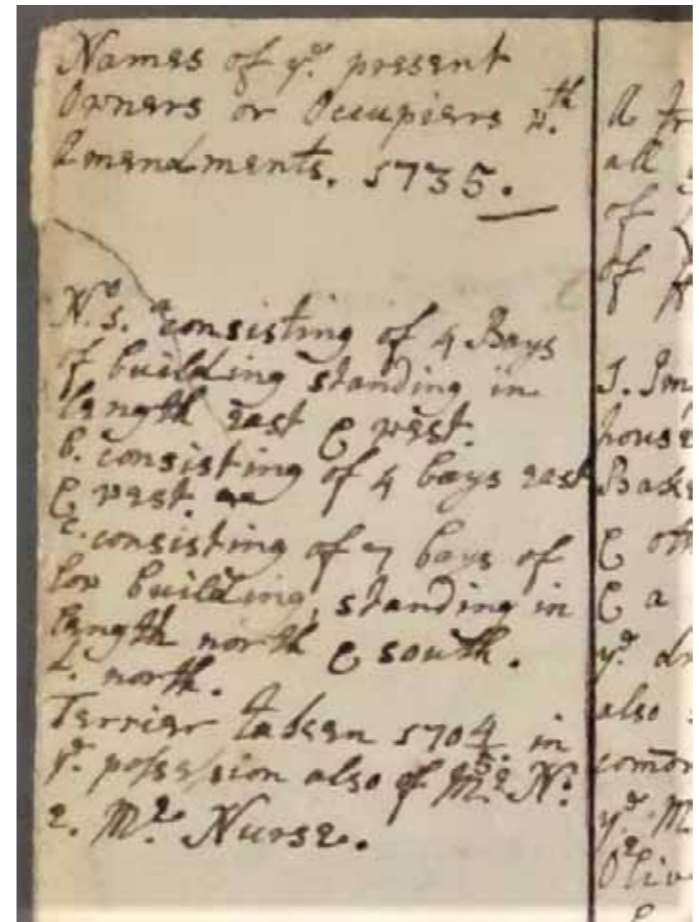 Names of ye. present
Owners or Occupiers wth.
Amendments. 1735.
No. 1. a consisting of 4 Bays
of building standing in
length east & west.
b. consisting of 4 bays east
& west.
c. consisting of 7 bays of
low building, standing in
length north & south.
d. north.
Terrier taken 1704/5. in
ye. possession also of Mr. N.
2. Mr. Nurse.
all
of
of
house
& oth
& a
ye.
also
ye. M
Olive